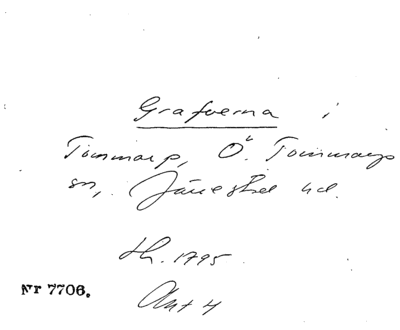 Grafverna i
Tommarp, Ö. Tommarps
sn, Järrestad hd.
th. 1795
Nr 7706.
Akt 4